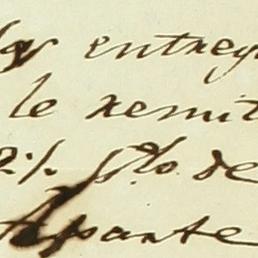 las entreg
le remit
2% S/lo. de
Aparte